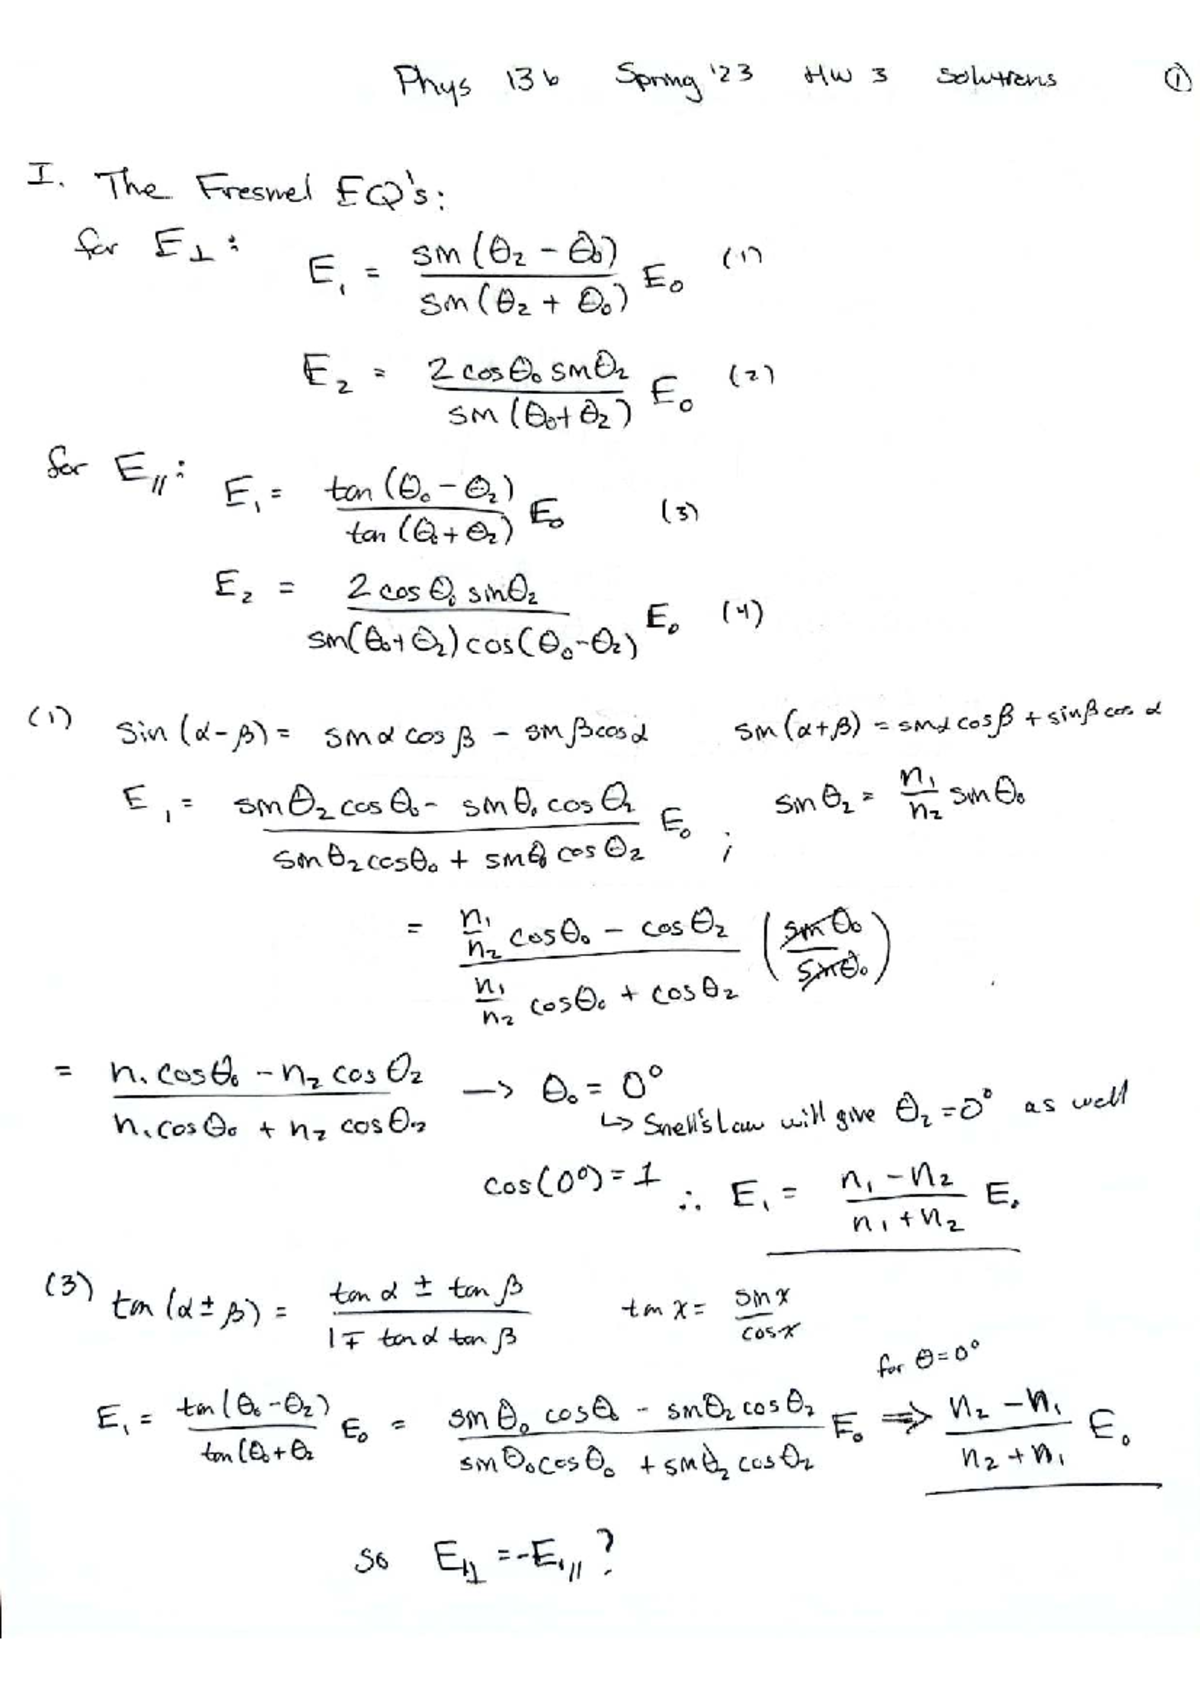 Phys 13b Spring '23 HW 3 Solutions ①
I. The Fresnel EQ's:
for E⊥: E₁ = sin(θ₂ - θ₀) / sin(θ₂ + θ₀) E₀ (1)
E₂ = 2 cosθ₀ sinθ₂ / sin(θ₀+θ₂) E₀ (2)
for E∥: E₁ = tan(θ₀ - θ₂) / tan(θ₀+θ₂) E₀ (3)
E₂ = 2 cosθ₀ sinθ₂ / sin(θ₀+θ₂)cos(θ₀-θ₂) E₀ (4)
(1) sin(α-β) = sinα cosβ - sinβcosα sin(α+β) = sinα cosβ + sinβcosα
E₁ = sinθ₂cosθ₀ - sinθ₀cosθ₂ / sinθ₂cosθ₀ + sinθ₀cosθ₂ E₀ ; sinθ₂ = n₁/n₂ sinθ₀
= n₁/n₂ cosθ₀ - cosθ₂ / n₁/n₂ cosθ₀ + cosθ₂ (sinθ₀/sinθ₀)
= n₁cosθ₀ - n₂cosθ₂ / n₁cosθ₀ + n₂cosθ₂ → θ₀ = 0°
↳ Snell's Law will give θ₂=0° as well
cos(0°)=1 ∴ E₁ = n₁-n₂ / n₁+n₂ E₀
(3) tan(α±β) = tanα ± tanβ / 1∓ tanα tanβ tan x = sin x / cos x
for θ=0°
E₁ = tan(θ₀-θ₂) / tan(θ₀+θ₂ E₀ = sinθ₀cosθ₀ - sinθ₂cosθ₂ / sinθ₀cosθ₀ + sinθ₂cosθ₂ E₀ ⇒ n₂-n₁ / n₂+n₁ E₀
so E₁⊥ = -E₁∥ ?